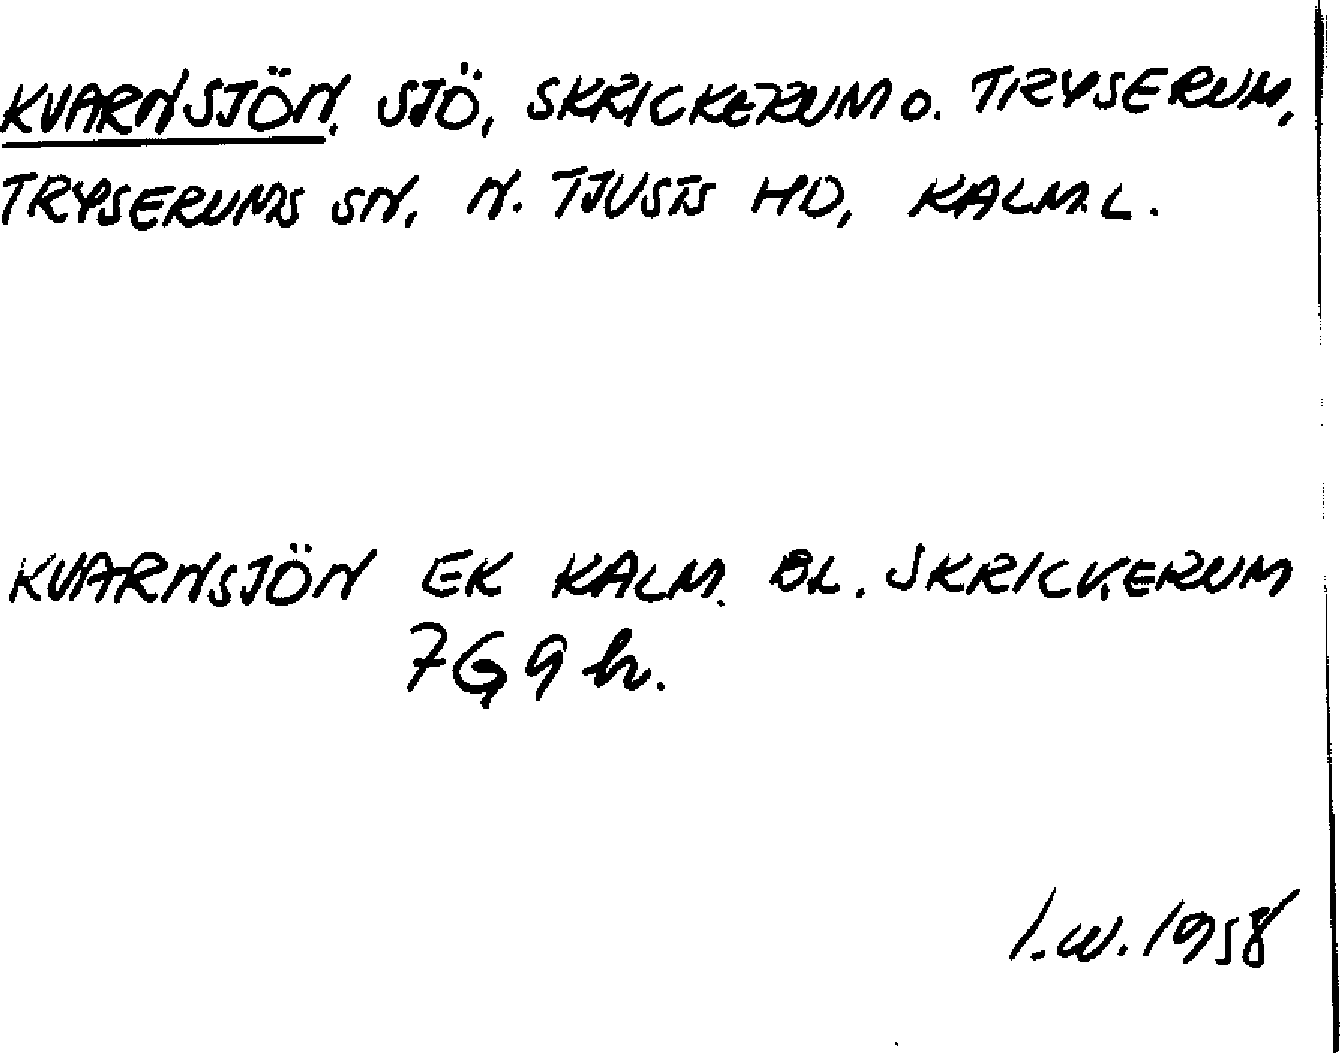 KVARNSJÖN, SJÖ, SKRICKERUM O. TRYSERUM,
TRYSERUMS SN, N. TJUSTS HD, KALM. L.
KVARNSJÖN EK KALM. BL. SKRICKERUM
7G 9h.
I.W. 1958